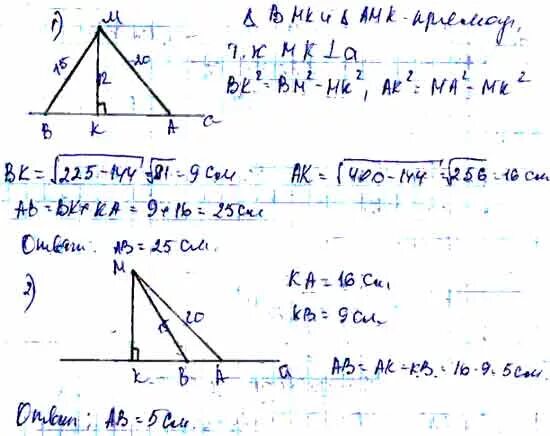 1)
M
15
12
20
B
K
A
a
Δ BMK и Δ AMK - прямоуг,
т.к MK⊥a
BK² = BM² - MK², AK² = MA² - MK²
BK = √225-144 = √81 = 9 см
AK = √400-144 = √256 = 16 см
AB = BK + KA = 9 + 16 = 25 см
Ответ: AB = 25 см.
2)
M
15
20
K
B
A
a
KA = 16 см,
KB = 9 см,
AB = AK - KB = 16 - 9 = 5 см.
Ответ; AB = 5 см.